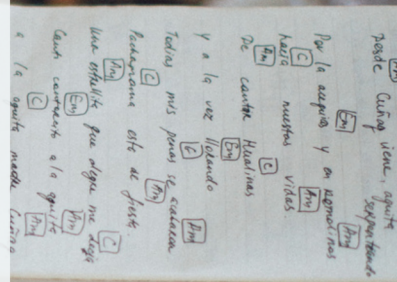 Am
desde Cuñaq viene, aguita serpenteando
Em Am
Por la acequia y en remolinos
C Am
hacia nuestras vidas.
Am C
De cantar Hualinas
Em
y a la vez llorando
G Am
Todas mis penas se acabaran
C Am
Pachamama esta de fiesta.
Am C
Una estrellita que alegre me dejó
Em Am
Canto contento a la aguita
C Am
a la aguita madre